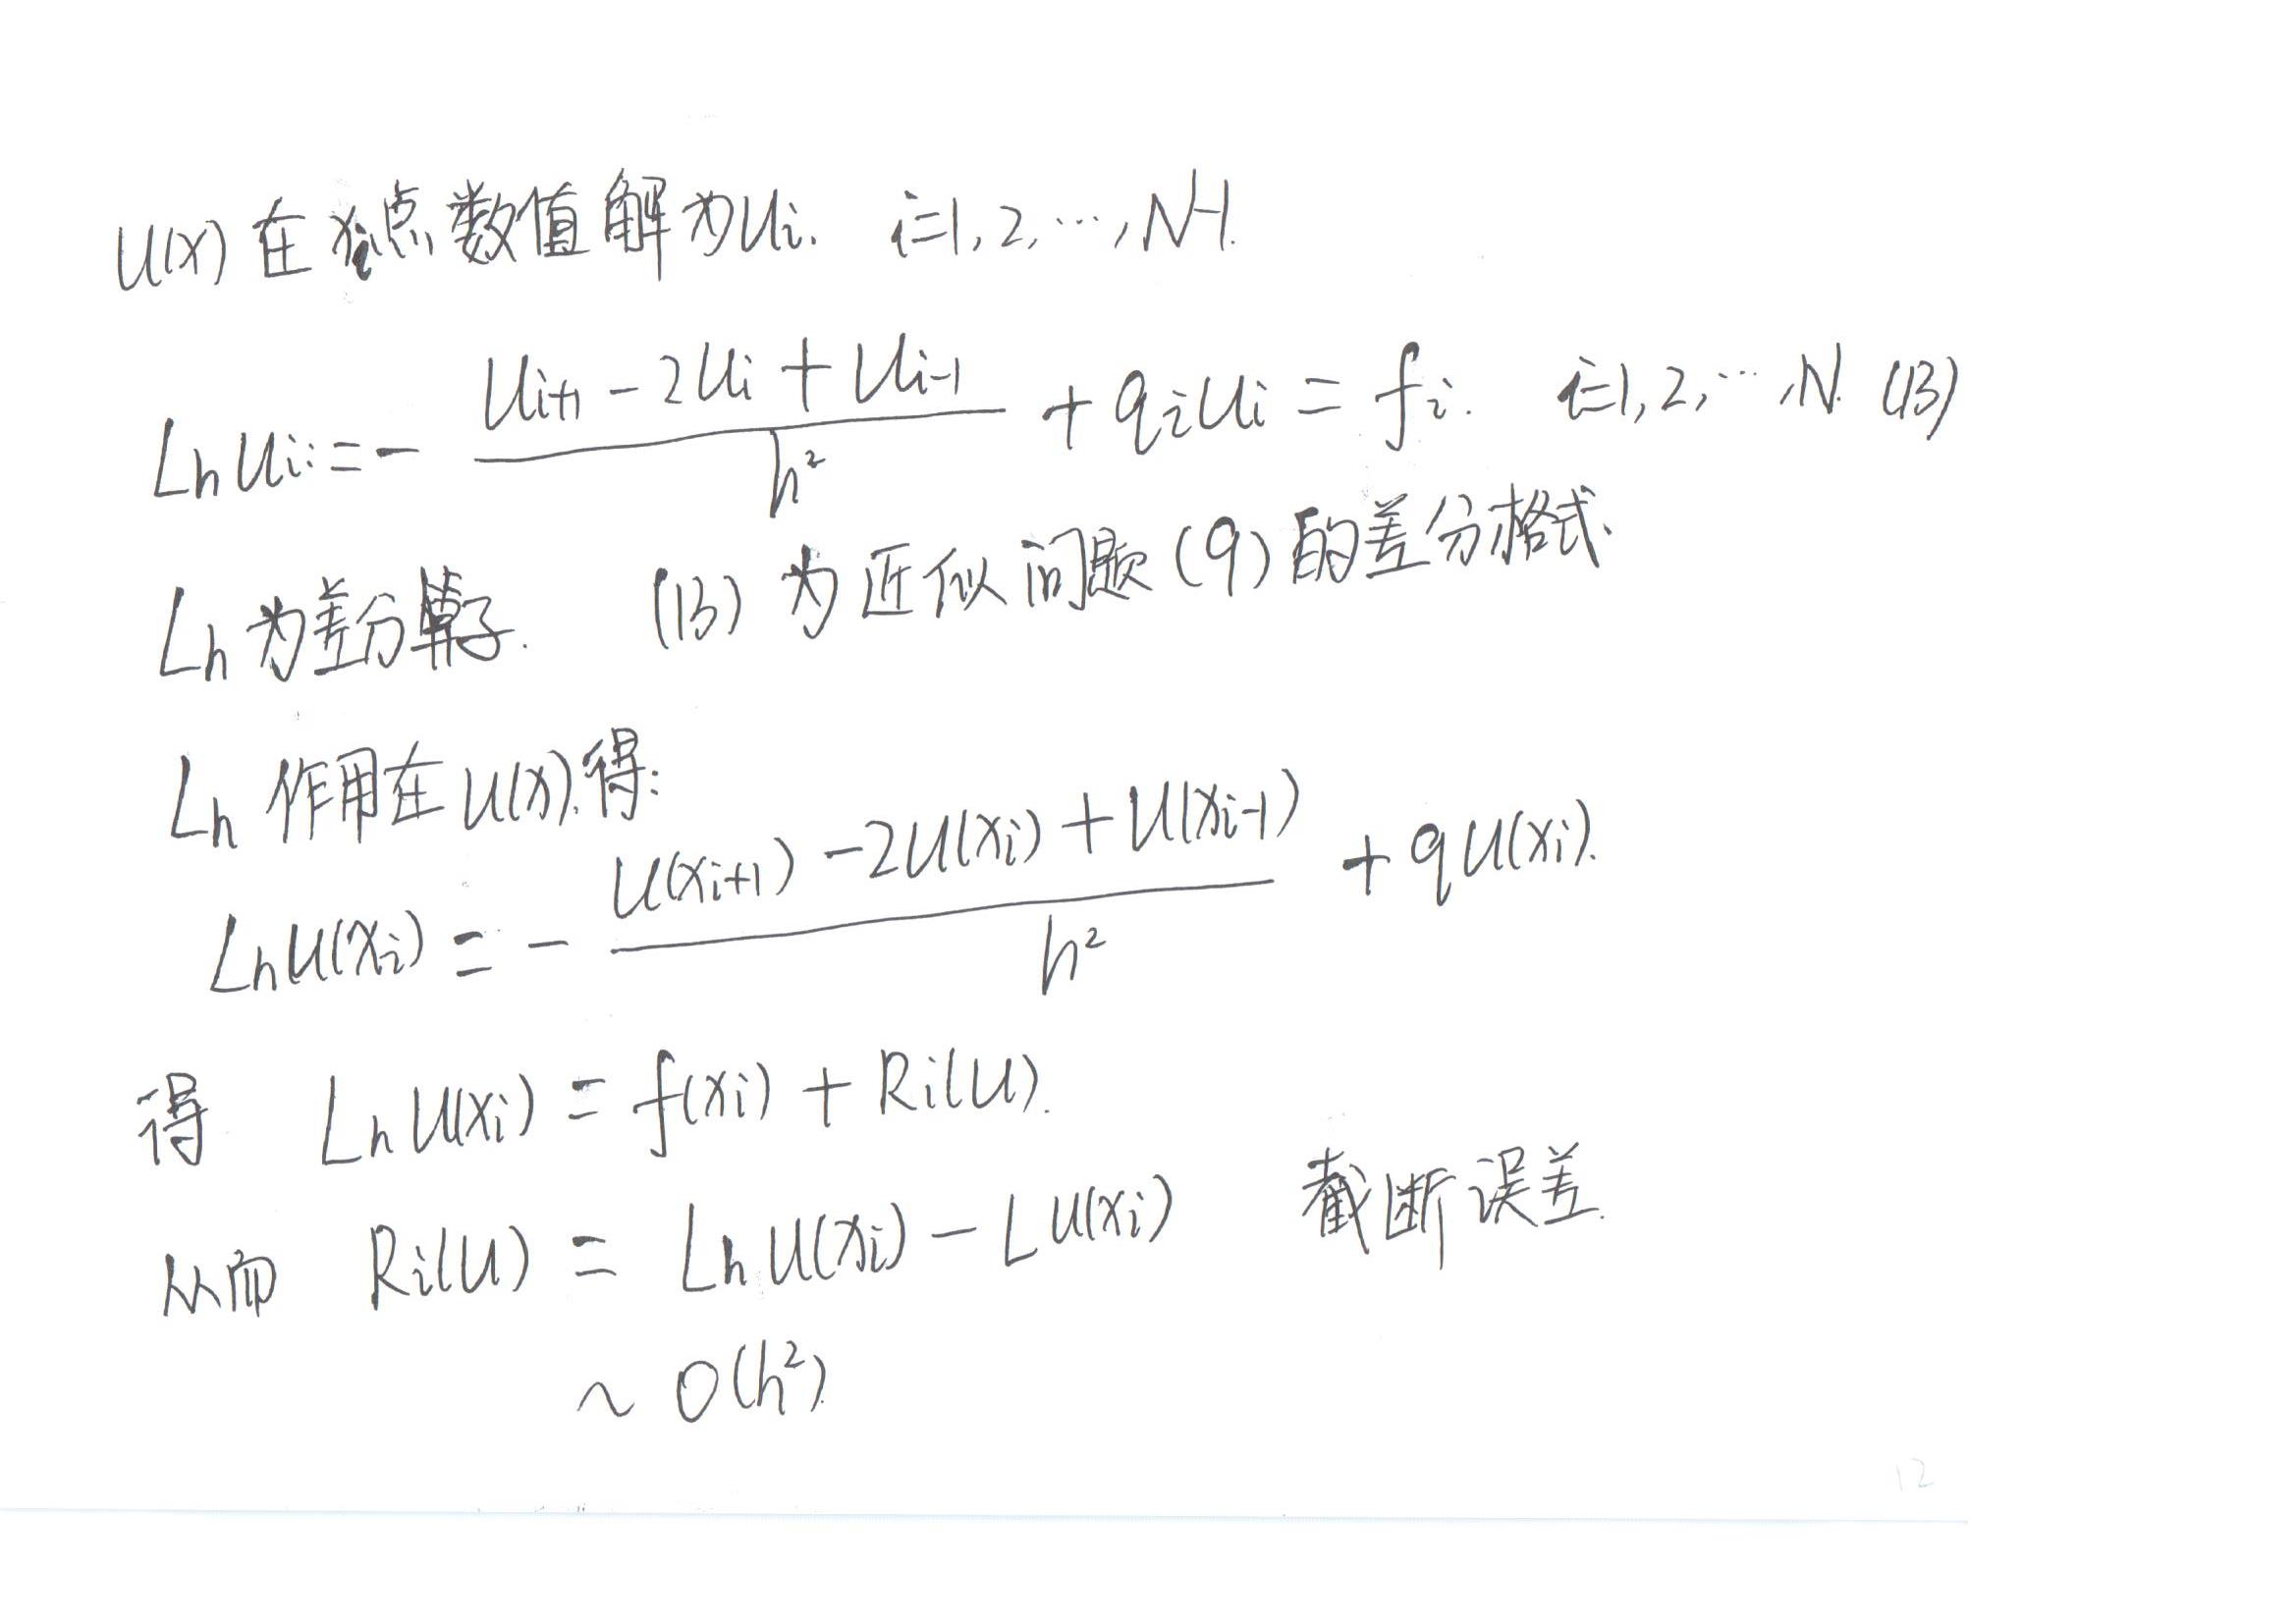 u(x) 在 xi点 数值解为 ui. i=1,2,…,N-1.
Lh ui := - (ui+1 - 2ui + ui-1) / h² + qi ui = fi. i=1,2,…,N. (13)
Lh 为差分算子. (13) 为近似问题 (9) 的差分格式.
Lh 作用在 u(x), 得:
Lh u(xi) = - (u(xi+1) - 2u(xi) + u(xi-1)) / h² + q u(xi).
得 Lh u(xi) = f(xi) + Ri(u).
从而 Ri(u) = Lh u(xi) - L u(xi) 截断误差.
~ O(h²)
12